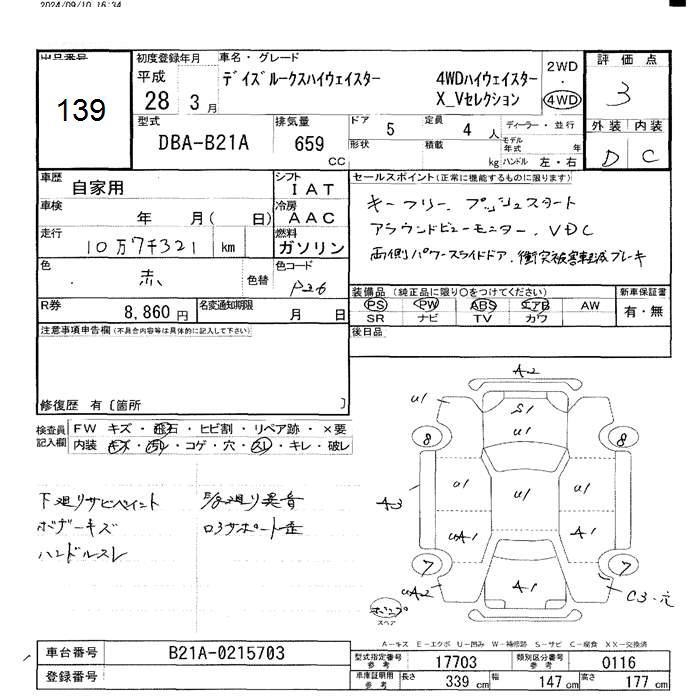 2024/09/10 16:34
出品番号
139
初度登録年月
平成
28 3 月
車名・グレード
デイズルークスハイウェイスター 4WDハイウェイスター
X_Vセレクション
2WD
・
4WD
評価点
3
外装 内装
D C
型式
DBA-B21A
排気量
659
CC
ドア 5 定員 4 人
形状 積載 kg
ディーラー・並行
モデル年式 年
ハンドル 左・右
車歴
自家用
シフト
IAT
車検
年 月( 日)
冷房
AAC
走行
10万7千321 km
燃料
ガソリン
色
赤
色替
色コード
P26
R券
8,860円
名変通知期限
月 日
セールスポイント(正常に機能するものに限ります)
キーフリー、プッシュスタート
アラウンドビューモニター、VDC
両側パワースライドドア、衝突被害軽減ブレーキ
装備品(純正品に限り○をつけてください)
PS PW ABS エアB AW
SR ナビ TV カワ
新車保証書
有・無
後日品
注意事項申告欄(不具合内容等は具体的に記入して下さい)
修復歴 有〔箇所 〕
検査員記入欄
FW キズ・飛石・ヒビ割・リペア跡・×要
内装 キズ・汚れ・コゲ・穴・スレ・キレ・破レ
下廻りサビペイント
ボデーキズ
ハンドルスレ
F/S廻り異音
ロアサポート歪
A2
U1
S1
U1
8
8
A3
U1
U1
U1
UA1
A1
7
7
UA2
A1
C3
スペア
A-キズ E-エクボ U-凹み W-補修跡 S-サビ C-腐食 XX-交換済
車台番号
B21A-0215703
登録番号
型式指定番号
参考
17703
類別区分番号
参考
0116
車庫証明用
参考
長さ 339 cm 幅 147 cm 高さ 177 cm